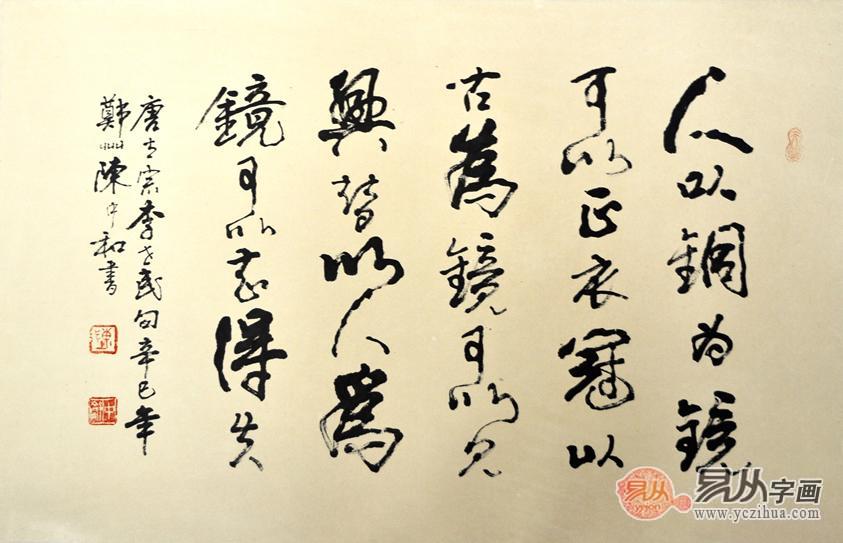 人以銅为鏡
可以正衣冠以
古為鏡可以見
興替以人為
鏡可以知得失
唐太宗李世民句辛巳年
鄭州陳中和書
易从
易从字画
www.yczihua.com